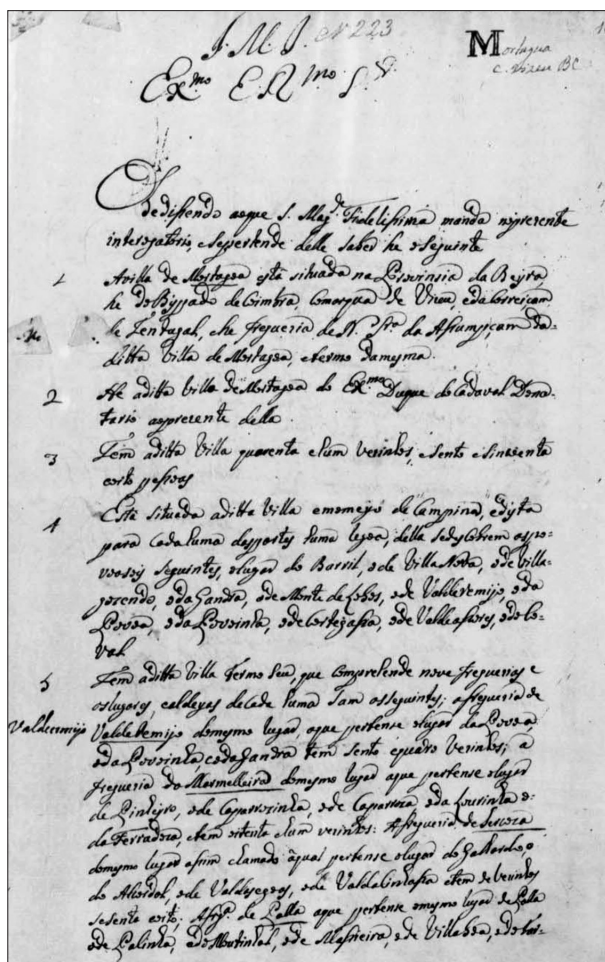 J. M. J. Nº 223
Mortagua
c. Vizeu BC
Ex.mo E R.mo S.r
dedissendo aoque S. Mag.de Fidelissima manda no prezente
interogatorio, e sepertende delle saber he o seguinte
1 A villa de Mortagoa esta situada na Provinsia da Beyra,
he do Byspado de Coimbra, Comarqua de Vizeu, e da Correiçam
de Tentugal, e he freguezia de N. Sr.a da Assumpçam da
ditta Villa de Mortagoa, e termo da mesma.
2 He a ditta Villa de Mortagoa do Ex.mo Duque do Cadaval Dona-
tario ao prezente della
3 Tem a ditta Villa quarenta e hum vezinhos, e sento e sincoenta
e oito pessoas
4 Está situada a ditta Villa em o meyo de Campina, e dysta
para cada huma das partes huma legoa, della se descobrem os po-
voasois seguintes, o lugar do Barril, e de Villa Nova, e de Villa-
, e da Gandra, e de Monte de Lobos, e de Valderemijo, e da
Povoa, e da Povoinha, e de Cortegassa, e de Valdeasores, e do Co-
val
5 Tem a ditta Villa termo seu, que comprehende nove freguezias e
os lugares, e aldeyas de cada huma sam os seguintes; a freguezia de
Valdermijo Valderemijo do mesmo lugar, a que pertense o lugar da Povoa,
e da Povoinha e da Gandra tem sento e quatro vezinhos; a
freguezia do Marmelleiro do mesmo lugar a que pertense o lugar
de Pinheyro, e de Caparrozinha, e de Caparroza e da Lourinha e
da Ferradoza, e tem oitenta e hum vezinhos: A freguezia de Sercoza
do mesmo lugar assim chamado a qual pertense o lugar do Galhardo, o
do Alcordal e de Valdesegeos, e de e tem de vezinhos
sesenta e oito; A freg.a de Palla a que pertense o mesmo lugar de Palla
e de Palinha, e do Moitinhal, e de , e de Villaboa,